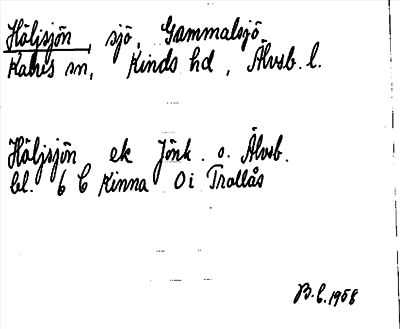 Häljsjön, sjö, Gammalsjö
Kalvs sn, Kinds hd, Älvsb. l.
Häljsjön ek Jönk. o. Älvsb.
bl. 6 C Kinna 0 i Trollås
B. C. 1958